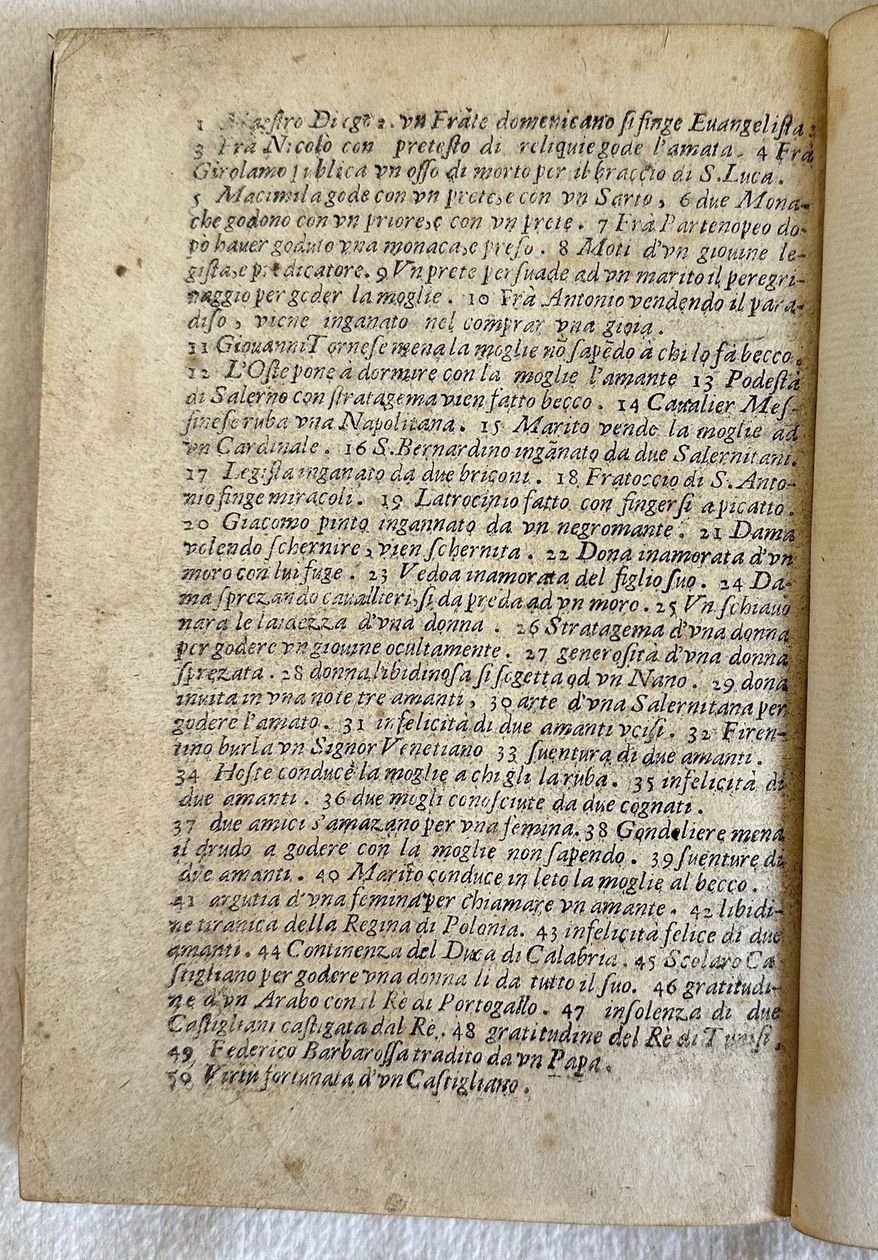 1 Maestro Diego 2. vn Fràte domenicano si finge Euangelista:
3 Frà Nicolò con pretesto di reliquie gode l'amata. 4 Frà
Girolamo publica vn osso di morto per il braccio di S. Luca.
5 Macimila gode con vn prete, e con vn Sarto, 6 due Mona-
che godono con vn priore, e con vn prete. 7 Frà Partenopeo do-
pò hauer goduto vna monaca, e preso. 8 Moti d'vn giouine le-
gista, e predicatore. 9 Vn prete persuade ad vn marito il peregri-
naggio per goder la moglie. 10 Frà Antonio vendendo il para-
diso, viene inganato nel comprar vna gioia.
11 Giouanni Tornese mena la moglie nõ sapẽdo à chi lo fà becco.
12 L'Oste pone à dormire con la moglie l'amante 13 Podestà
di Salerno con stratagema vien fatto becco. 14 Caualier Mes-
sinese ruba vna Napolitana. 15 Marito vende la moglie ad
vn Cardinale. 16 S. Bernardino ingãnato da due Salernitani.
17 Legista inganato da due briconi. 18 Fratoccio di S. Anto-
nio finge miracoli. 19 Latrocinio fatto con fingersi apicatto.
20 Giacomo pinto ingannato da vn negromante. 21 Dama
volendo schernire, vien schernita. 22 Dona inamorata d'vn
moro con lui fuge. 23 Vedoa inamorata del figlio suo. 24 Da-
ma sprezando cauallieri, si da preda ad vn moro. 25 Vn schiauo
nara le laidezza d'vna donna. 26 Stratagema d'vna donna
per godere vn giouine ocultamente. 27 generosità d'vna donna
sprezata. 28 donna libidinosa si sogetta ad vn Nano. 29 dona
inuita in vna note tre amanti, 30 arte d'vna Salernitana per
godere l'amato. 31 infelicità di due amanti vcisi. 32 Firen-
tino burla vn Signor Venetiano 33 suentura di due amanti.
34 Hoste conduce la moglie a chi gli la ruba. 35 infelicità di
due amanti. 36 due mogli conosciute da due cognati.
37 due amici s'amazano per vna femina. 38 Gondoliere mena
il drudo a godere con la moglie non sapendo. 39 suenture di
due amanti. 40 Marito conduce in leto la moglie al becco.
41 argutia d'vna femina per chiamare vn amante. 42 libidi-
ne tiranica della Regina di Polonia. 43 infelicità felice di due
amanti. 44 Continenza del Duca di Calabria. 45 Scolaro Ca-
stigliano per godere vna donna li da tutto il suo. 46 gratitudi-
ne d'vn Arabo con il Rè di Portogallo. 47 insolenza di due
Castigliani castigata dal Rè. 48 gratitudine del Rè di Tunisi.
49 Federico Barbarossa tradito da vn Papa.
50 Virtù fortunata d'vn Castigliano.